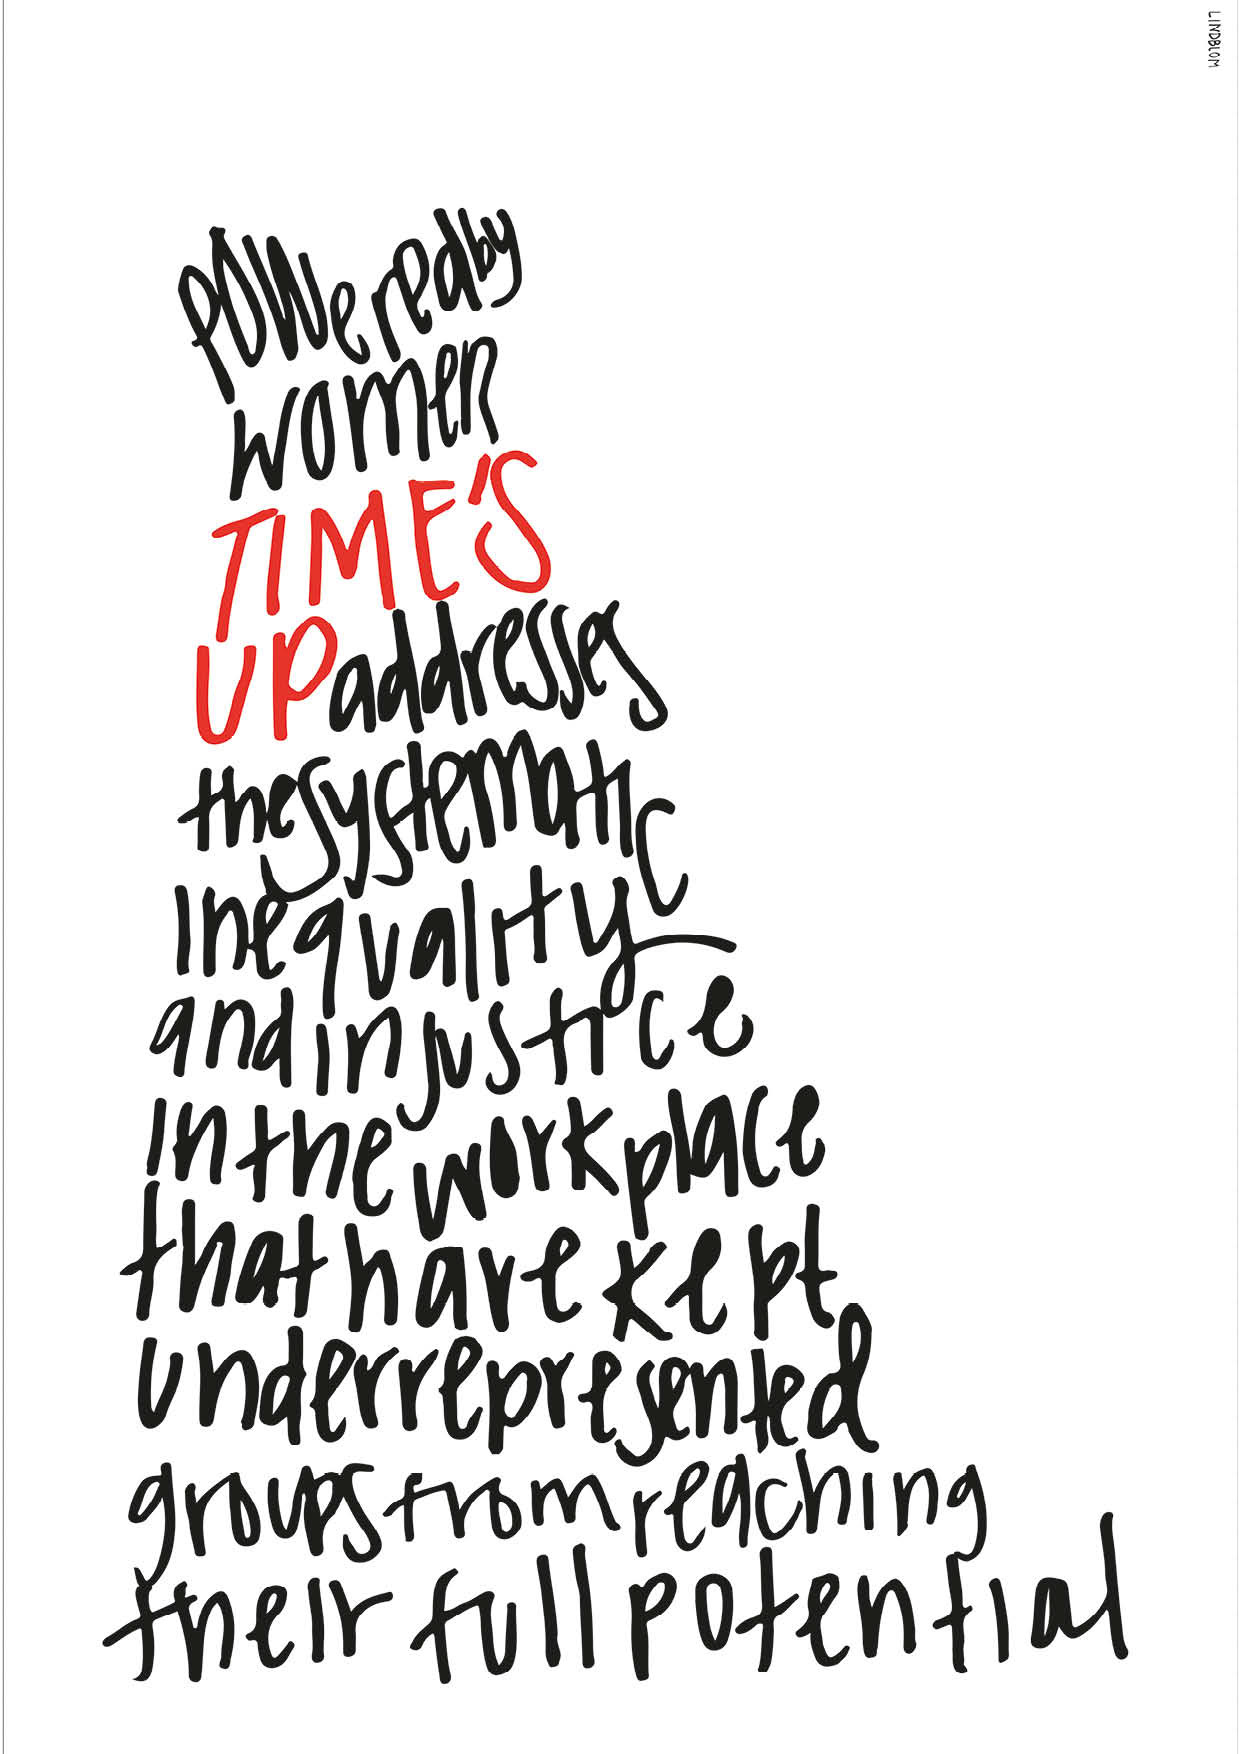 LINDBLOM
POWered by
women
TIME'S
UP addresses
the systematic
inequality
and injustice
in the workplace
that have kept
underrepresented
groups from reaching
their full potential